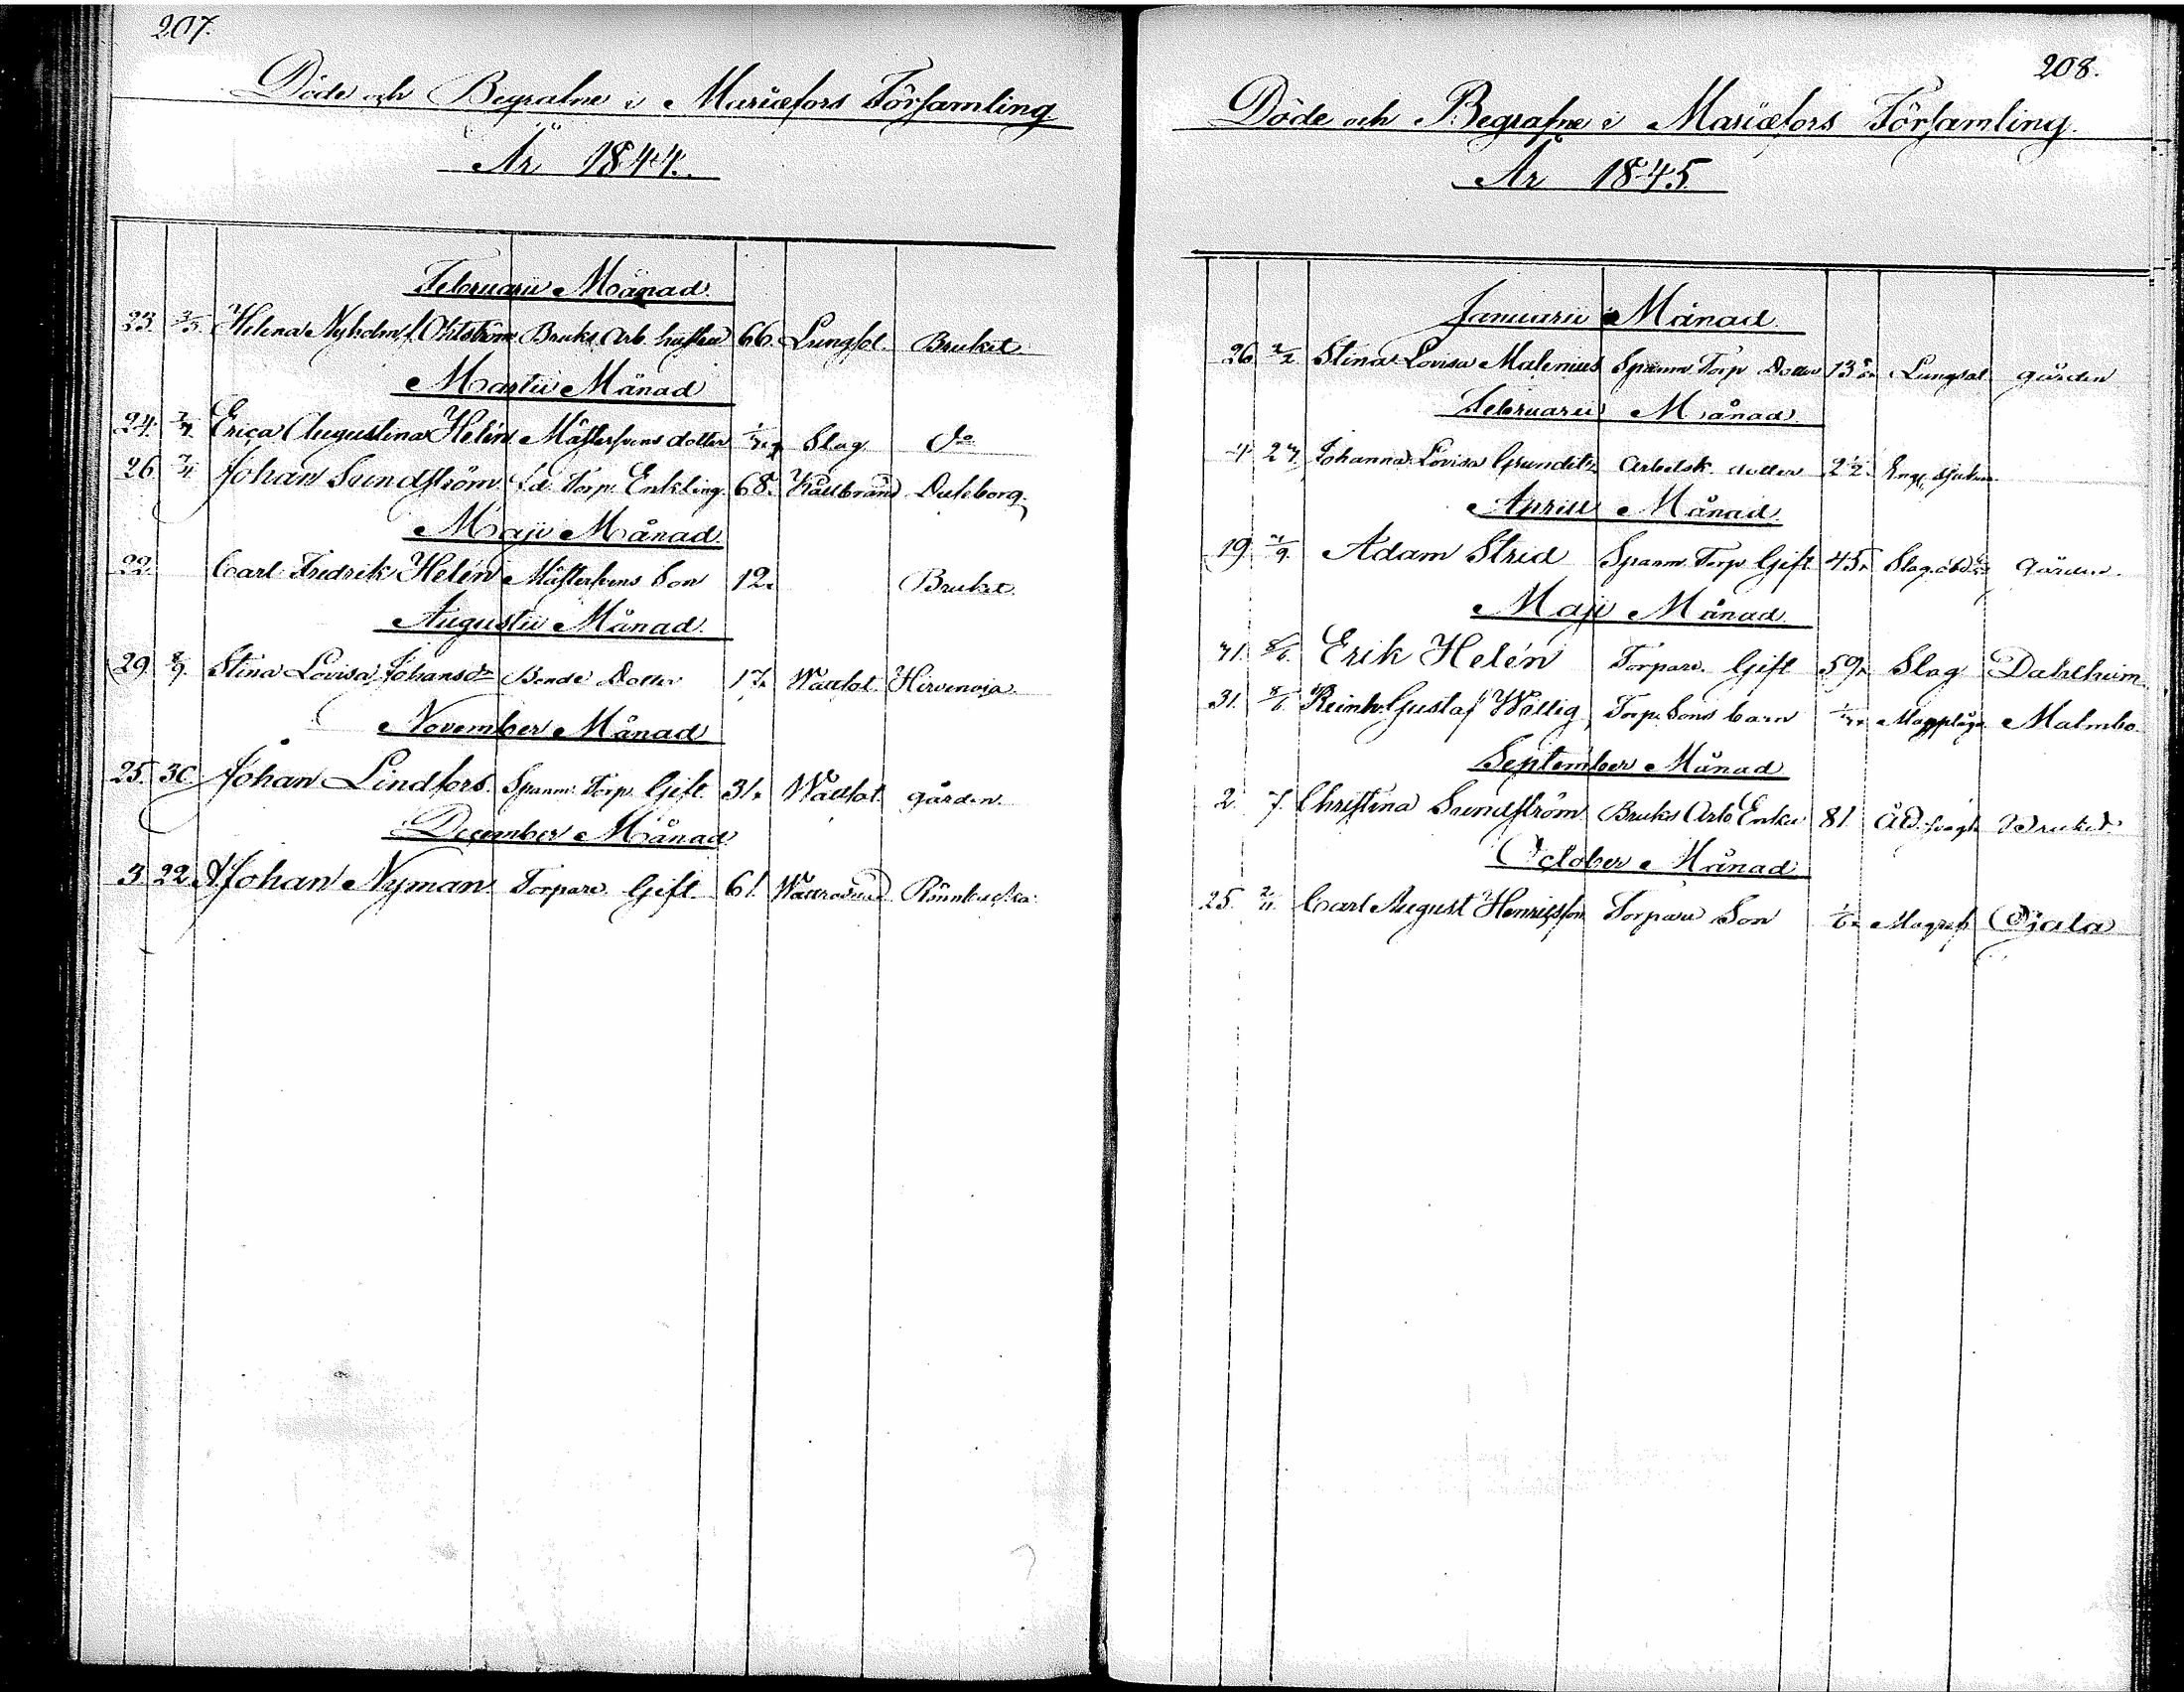 207.
Döde och Begrafne i Mariæfors Församling
År 1844.
Februarii Månad.
23. 3/3. Helena Nyholm f. Ahlström Bruks Arb. hustru 66. Lungsot. Bruket.
Martii Månad
24. Erica Augustina Helén Mästersvens dotter Slag do
26. Johan Sundström f.d. Torp. Enkling. 68. Kallbrand
Maji Månad.
22. Carl Fredrik Helén Mästersvens Son 12. Bruket.
Augustii Månad.
29. 8/9. Stina Lovisa Johansdr Bonde Dotter 17. Wattsot. Hirvenoja.
November Månad
25. 30. Johan Lindfors. Spanm. Torp. Gift. 31. Wattsot gården.
December Månad
3. 22. Johan Nyman. Torpare. Gift. 61.
208.
Döde och Begrafne i Mariæfors Församling.
År 1845.
Januarii Månad.
26. 2/2. Stina Lovisa Malenius Spanm. Torp Dotter 13 Lungsot gården
Februarii Månad.
4. 27. Johanna Lovisa Arbetsk. dotter 2 1/2. Eng. sjukan
Aprill Månad.
19. Adam Strid Spanm. Torp Gift 45. Slag gården.
Maji Månad.
8/6. Erik Helén Torpare. Gift 59. Slag Dahlheim.
31. 8/6. Reinh. Gustaf Wallig Torp. Sons barn Magplåga Malmbo.
September Månad
2. 7. Christina Sundström Bruks Arb Enka 81. Åld. svagh Bruket
October Månad
25. 2/11. Carl August Henriksson Torpare Son Magref Ojala